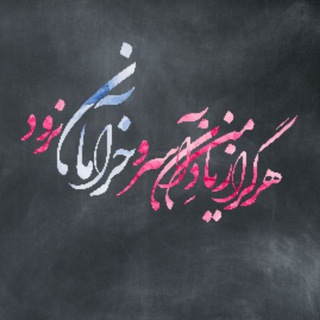 هرگز از یاد من آن سرو خرامان نرود